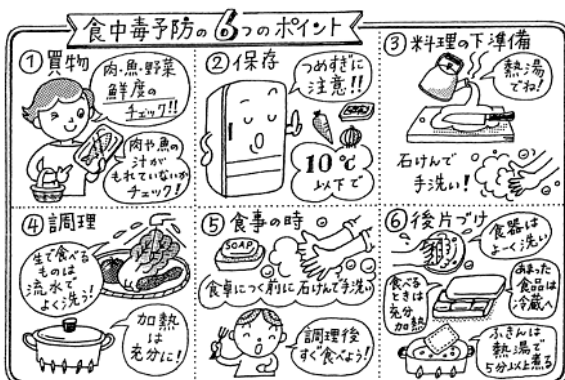 食中毒予防の6つのポイント
①買物
肉・魚・野菜
鮮度の
チェック!!
肉や魚の
汁が
もれていないか
チェック!
②保存
つめすぎに
注意!!
10℃
以下で
③料理の下準備
熱湯
でね!
石けんで
手洗い!
④調理
生で食べる
ものは
流水で
よく洗う!
加熱
は
充分に!
⑤食事の時
SOAP
食卓につく前に石けんで手洗い
調理後
すぐ食べよう!
⑥後片づけ
食器は
よーく洗い
食べる
ときは
充分
加熱
あまった
食品は
冷蔵へ
ふきんは
熱湯で
5分以上煮る